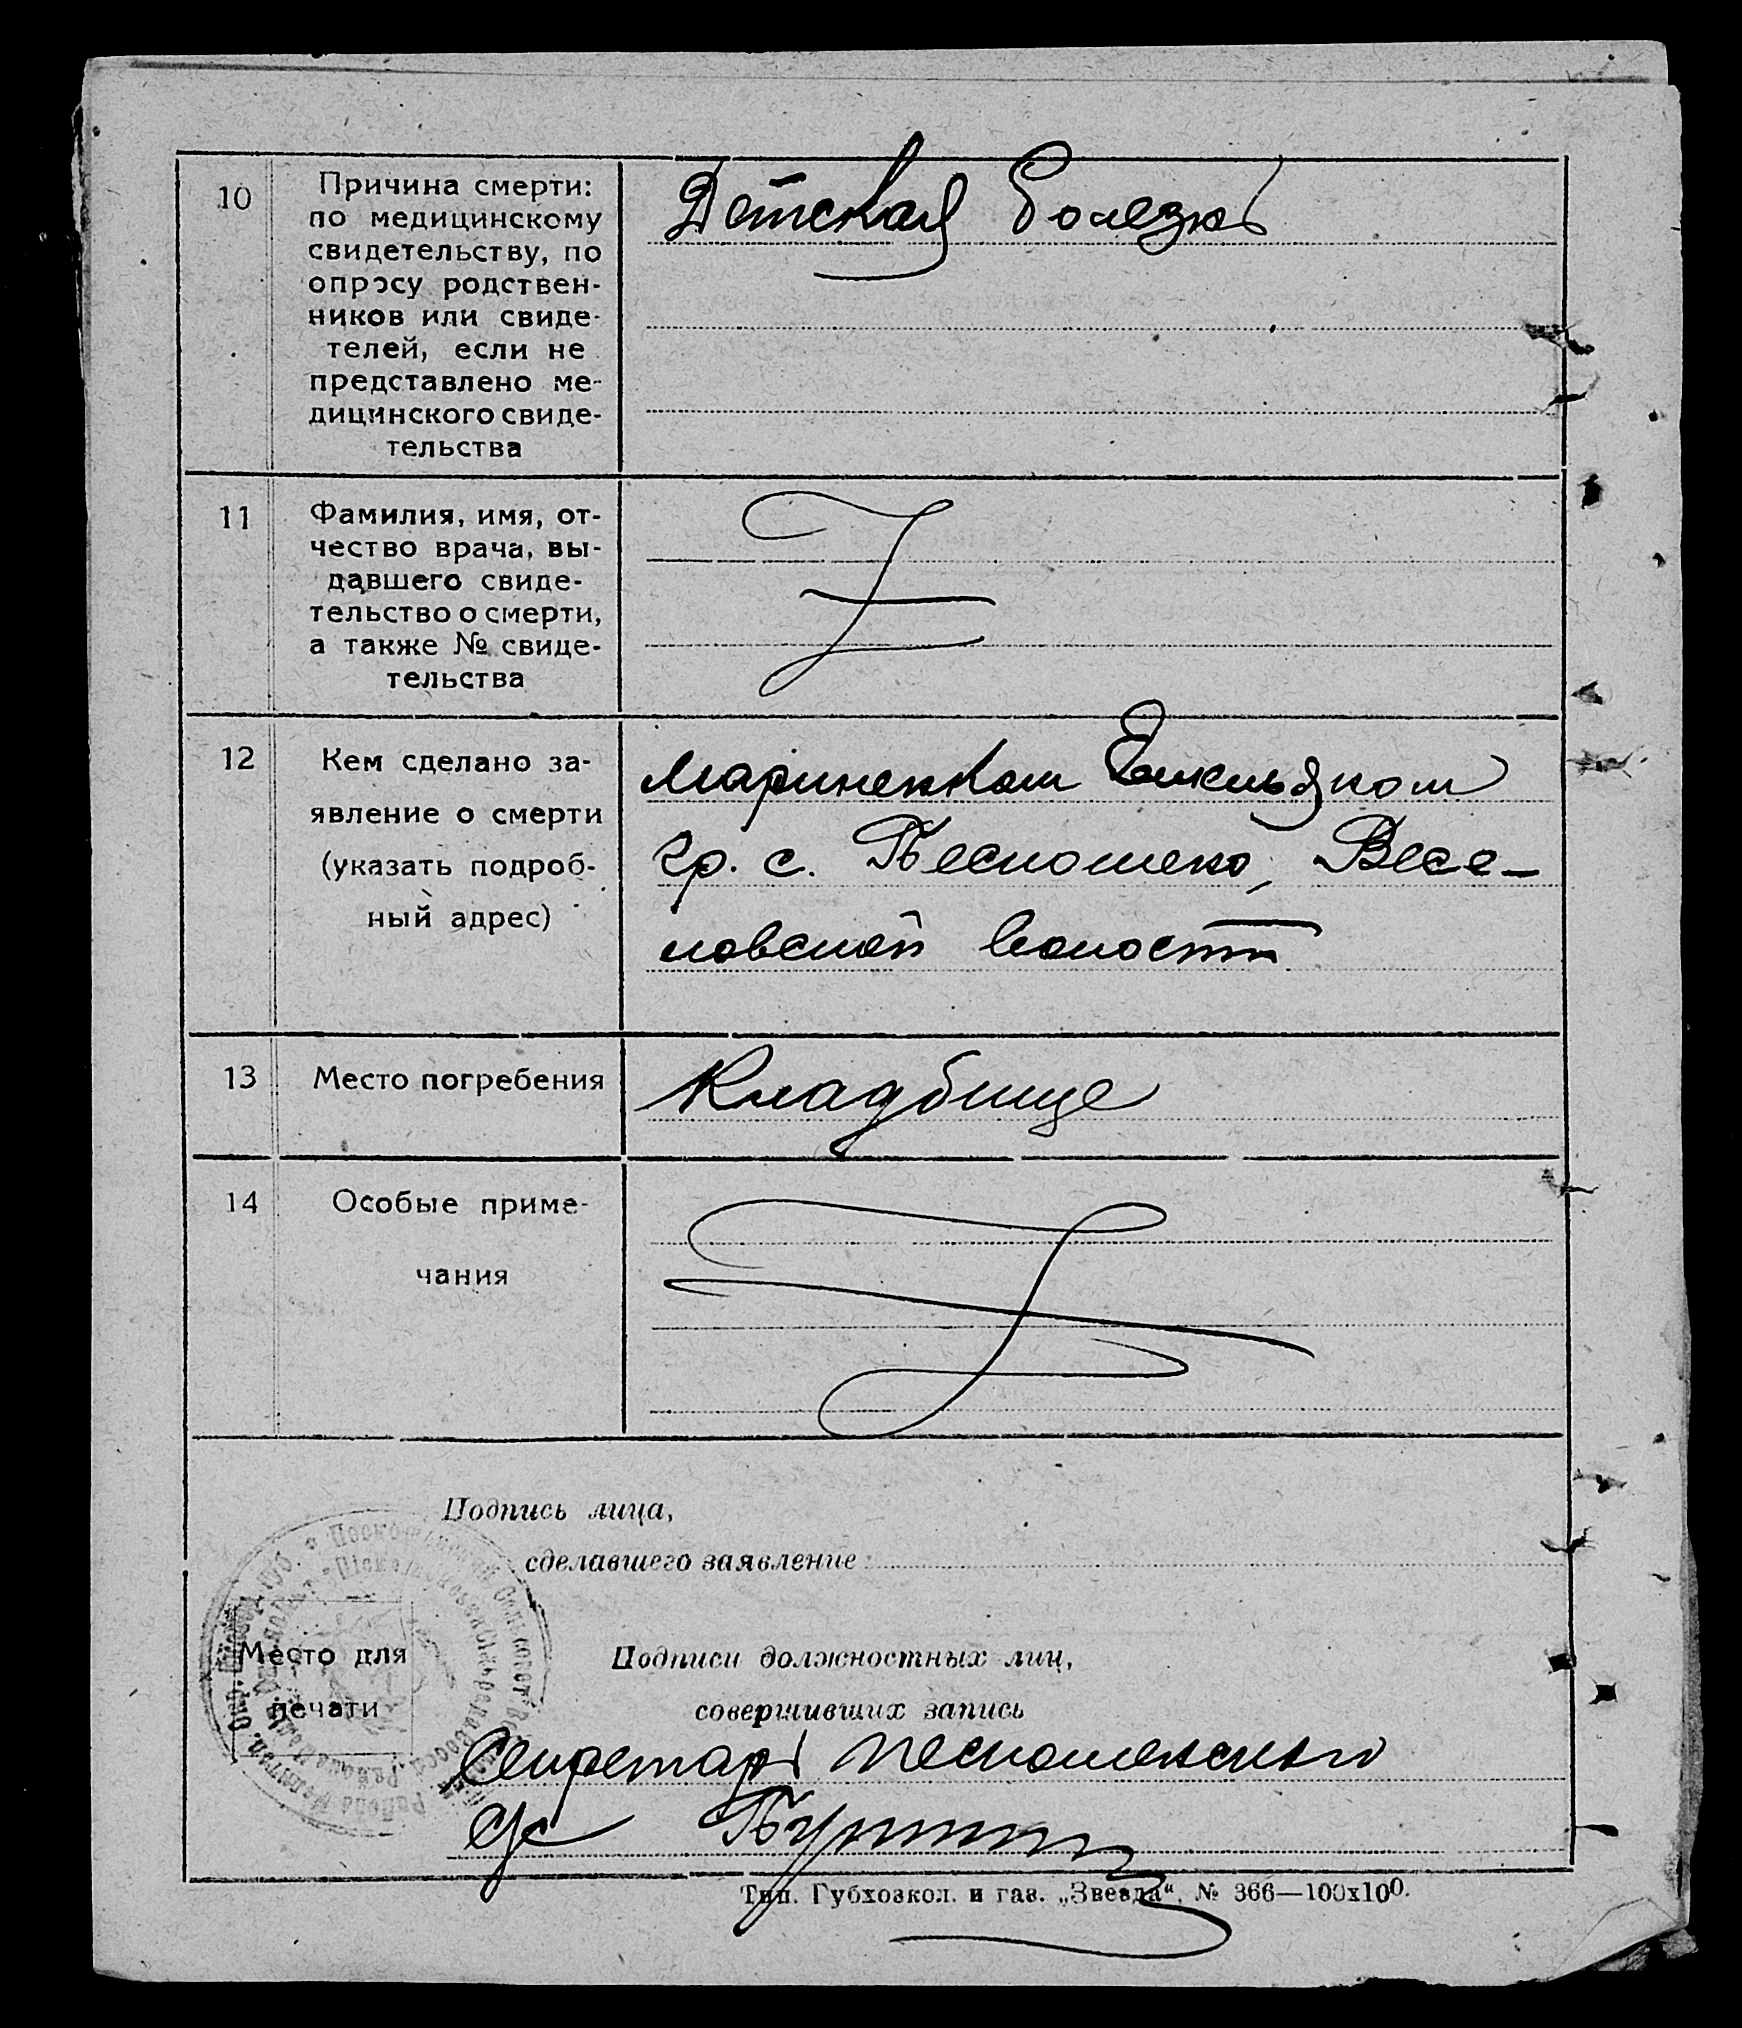 10
Причина смерти:
по медицинскому
свидетельству, по
опросу родствен-
ников или свиде-
телей, если не
представлено ме-
дицинского свиде-
тельства
Детская болезнь
11
Фамилия, имя, от-
чество врача, вы-
давшего свиде-
тельство о смерти,
а также № свиде-
тельства
12
Кем сделано за-
явление о смерти
(указать подроб-
ный адрес)
гр. с. Весе-
ловской волости
13
Место погребения
Кладбище
14
Особые приме-
чания
Подпись лица,
сделавшего заявление
Место для
печати
Подписи должностных лиц,
совершивших запись
Секретарь
с/с
Тип. Губхозкол. и газ. „Звезда“, № 366—100х100.